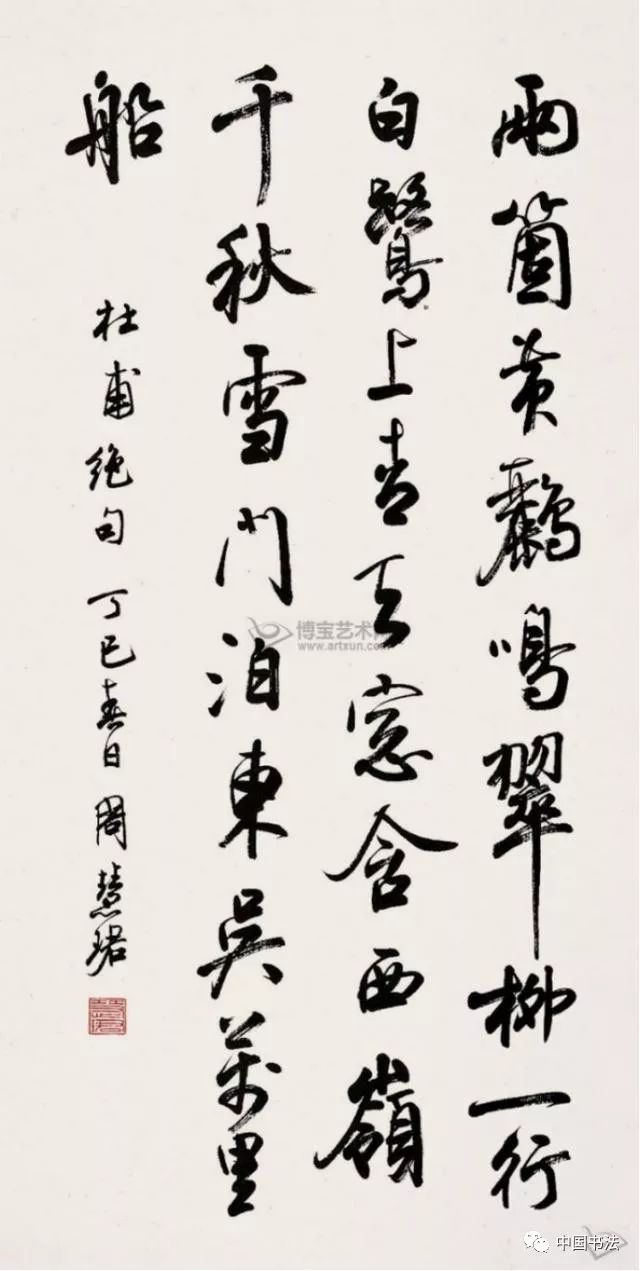 兩箇黄鸝鳴翠柳一行
白鷺上青天窓含西嶺
千秋雪門泊東吳萬里
船
杜甫絶句 丁巳春日 周慧珺
博宝艺术网
www.artxun.com
中国书法